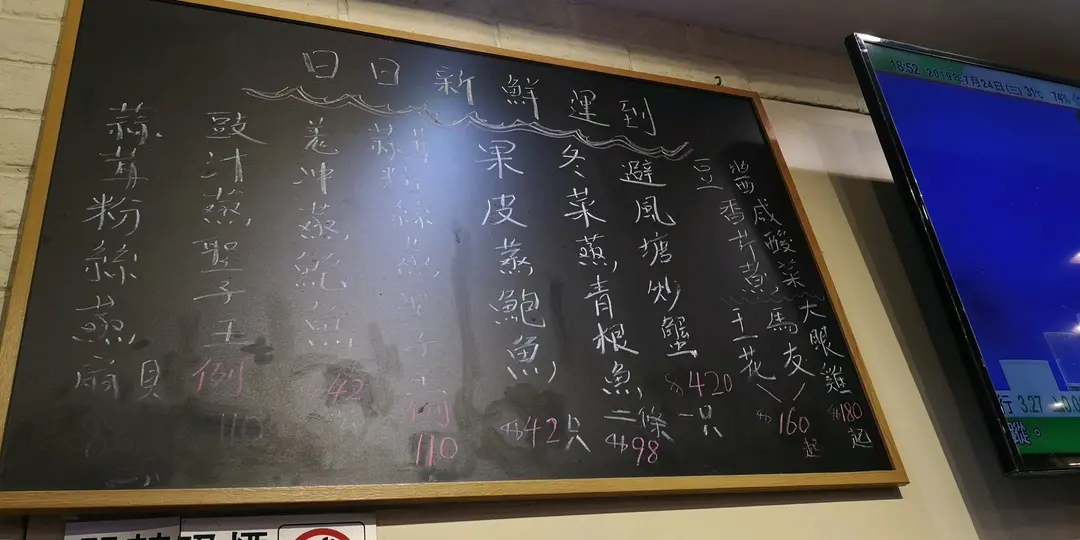 日日新鮮運到
潮 咸酸菜 大眼雞 $180起
豆 香芹煮 馬友 $160起
王花
避風塘炒蟹 $420一只
冬菜蒸青根魚 二條 $98
果皮蒸鮑魚 $42只
蒜茸粉絲蒸聖子王 例 110
羗冲蒸鮑魚 42
豉汁蒸聖子王 例 110
蒜茸粉絲蒸扇貝
18:52 2019年7月24日(三) 31°C 74%
行 3.27
蹤。